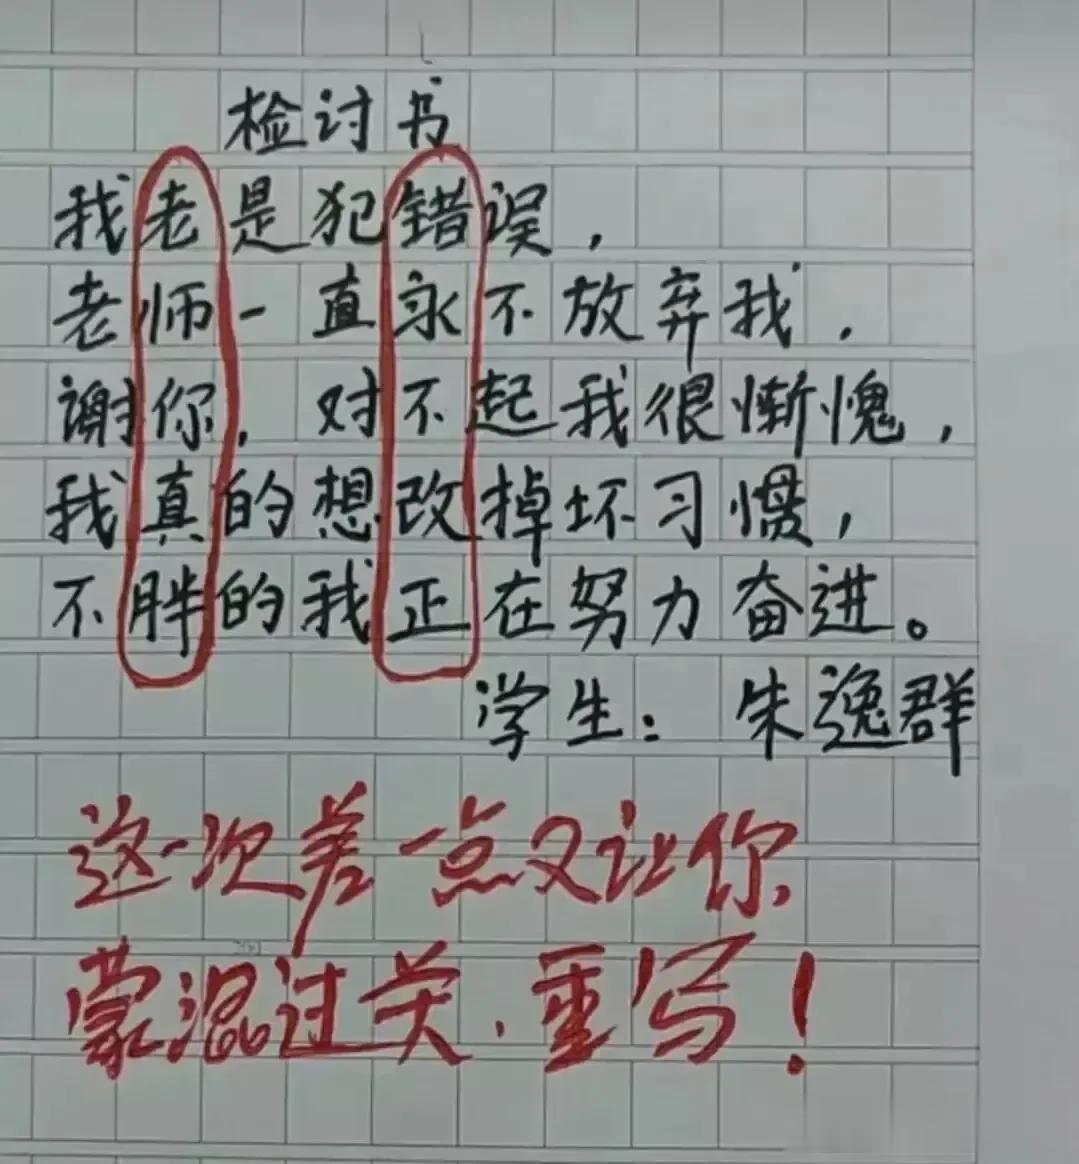 检讨书
我老是犯错误,
老师一直永不放弃我,
谢你,对不起我很惭愧,
我真的想改掉坏习惯,
不胖的我正在努力奋进。
学生:朱逸群
这一次差一点又让你
蒙混过关,重写!